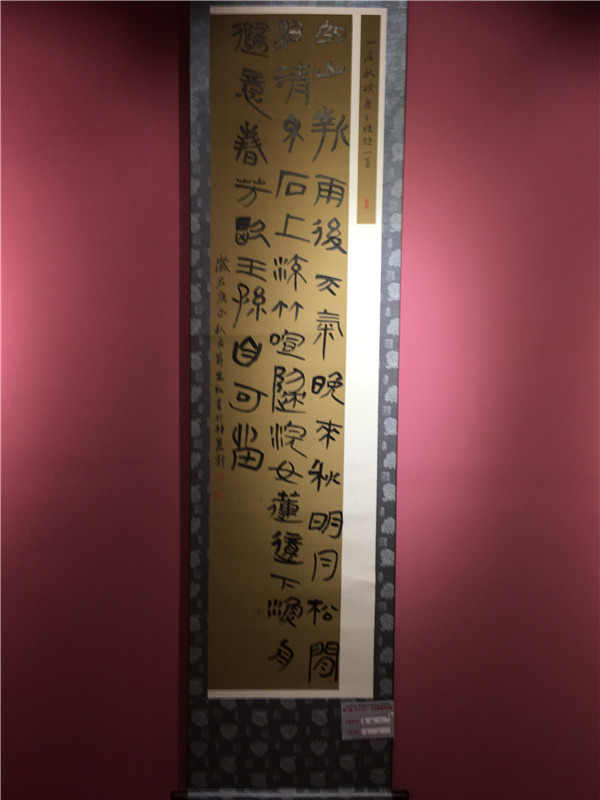 山居秋暝唐王維詩一首
空山新雨後天氣晚来秋明月松間
照清泉石上流竹喧歸浣女蓮動下漁舟
隨意春芳歇王孫自可留
歲在庚子秋月